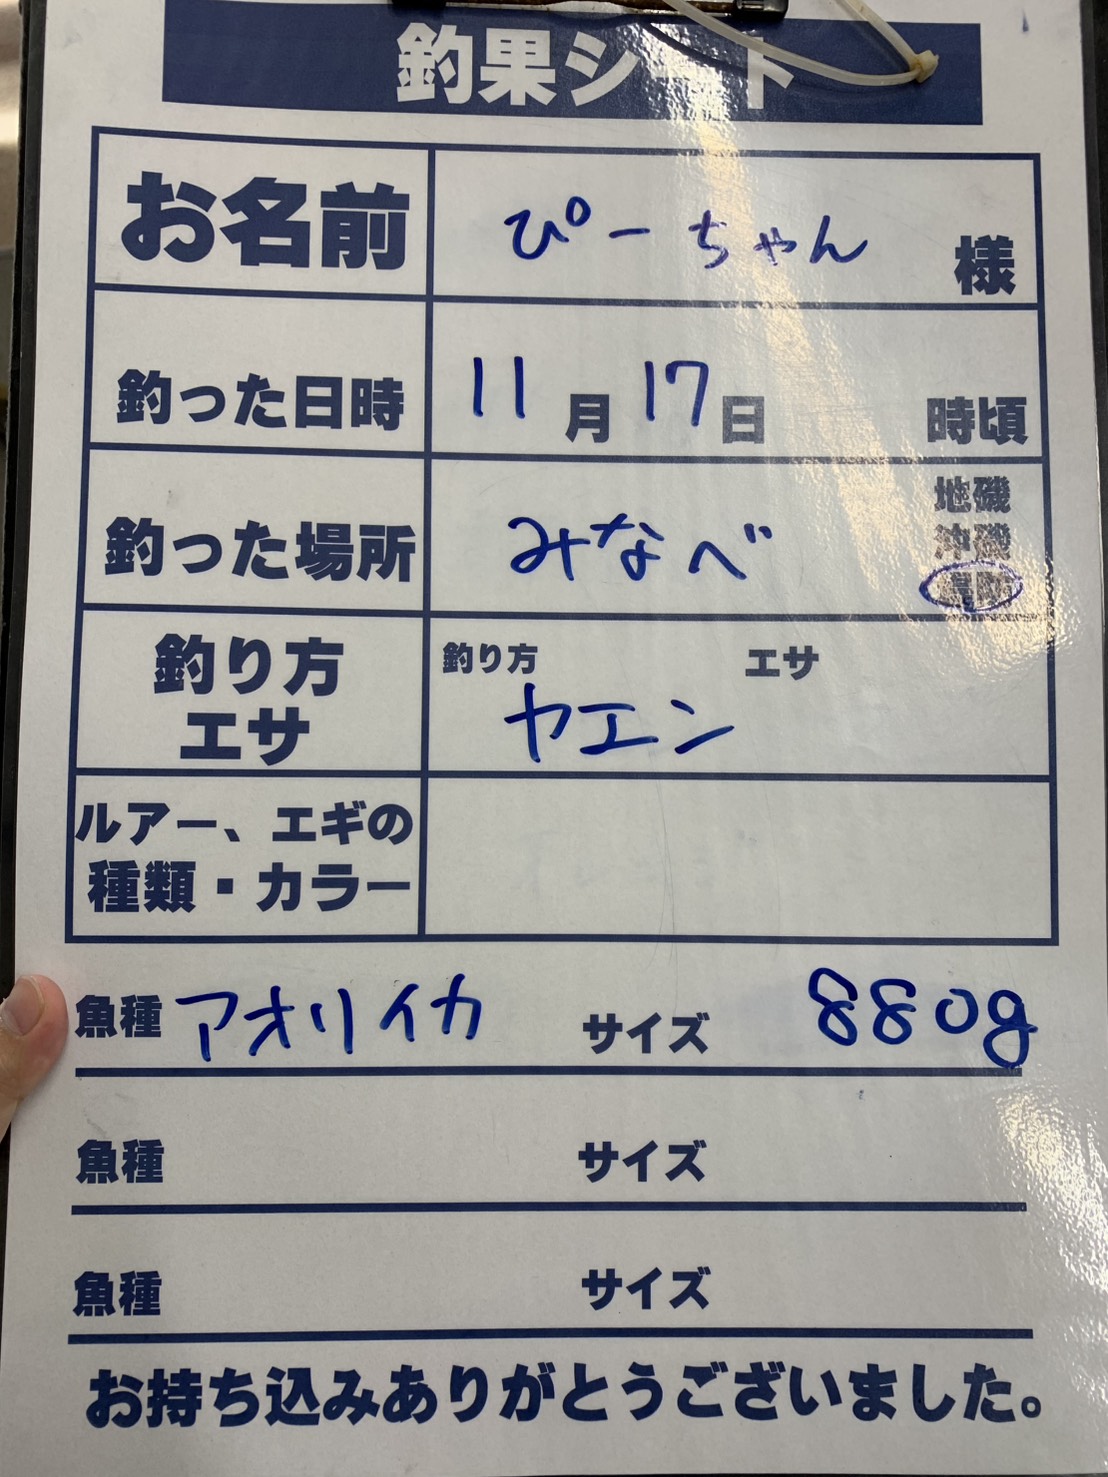 釣果シート
お名前 ぴーちゃん 様
釣った日時 11月17日 時頃
地磯
釣った場所 みなべ 沖磯
堤防
釣り方 エサ
釣り方 エサ
ヤエン
ルアー、エギの
種類・カラー
魚種 アオリイカ サイズ 880g
魚種 サイズ
魚種 サイズ
お持ち込みありがとうございました。